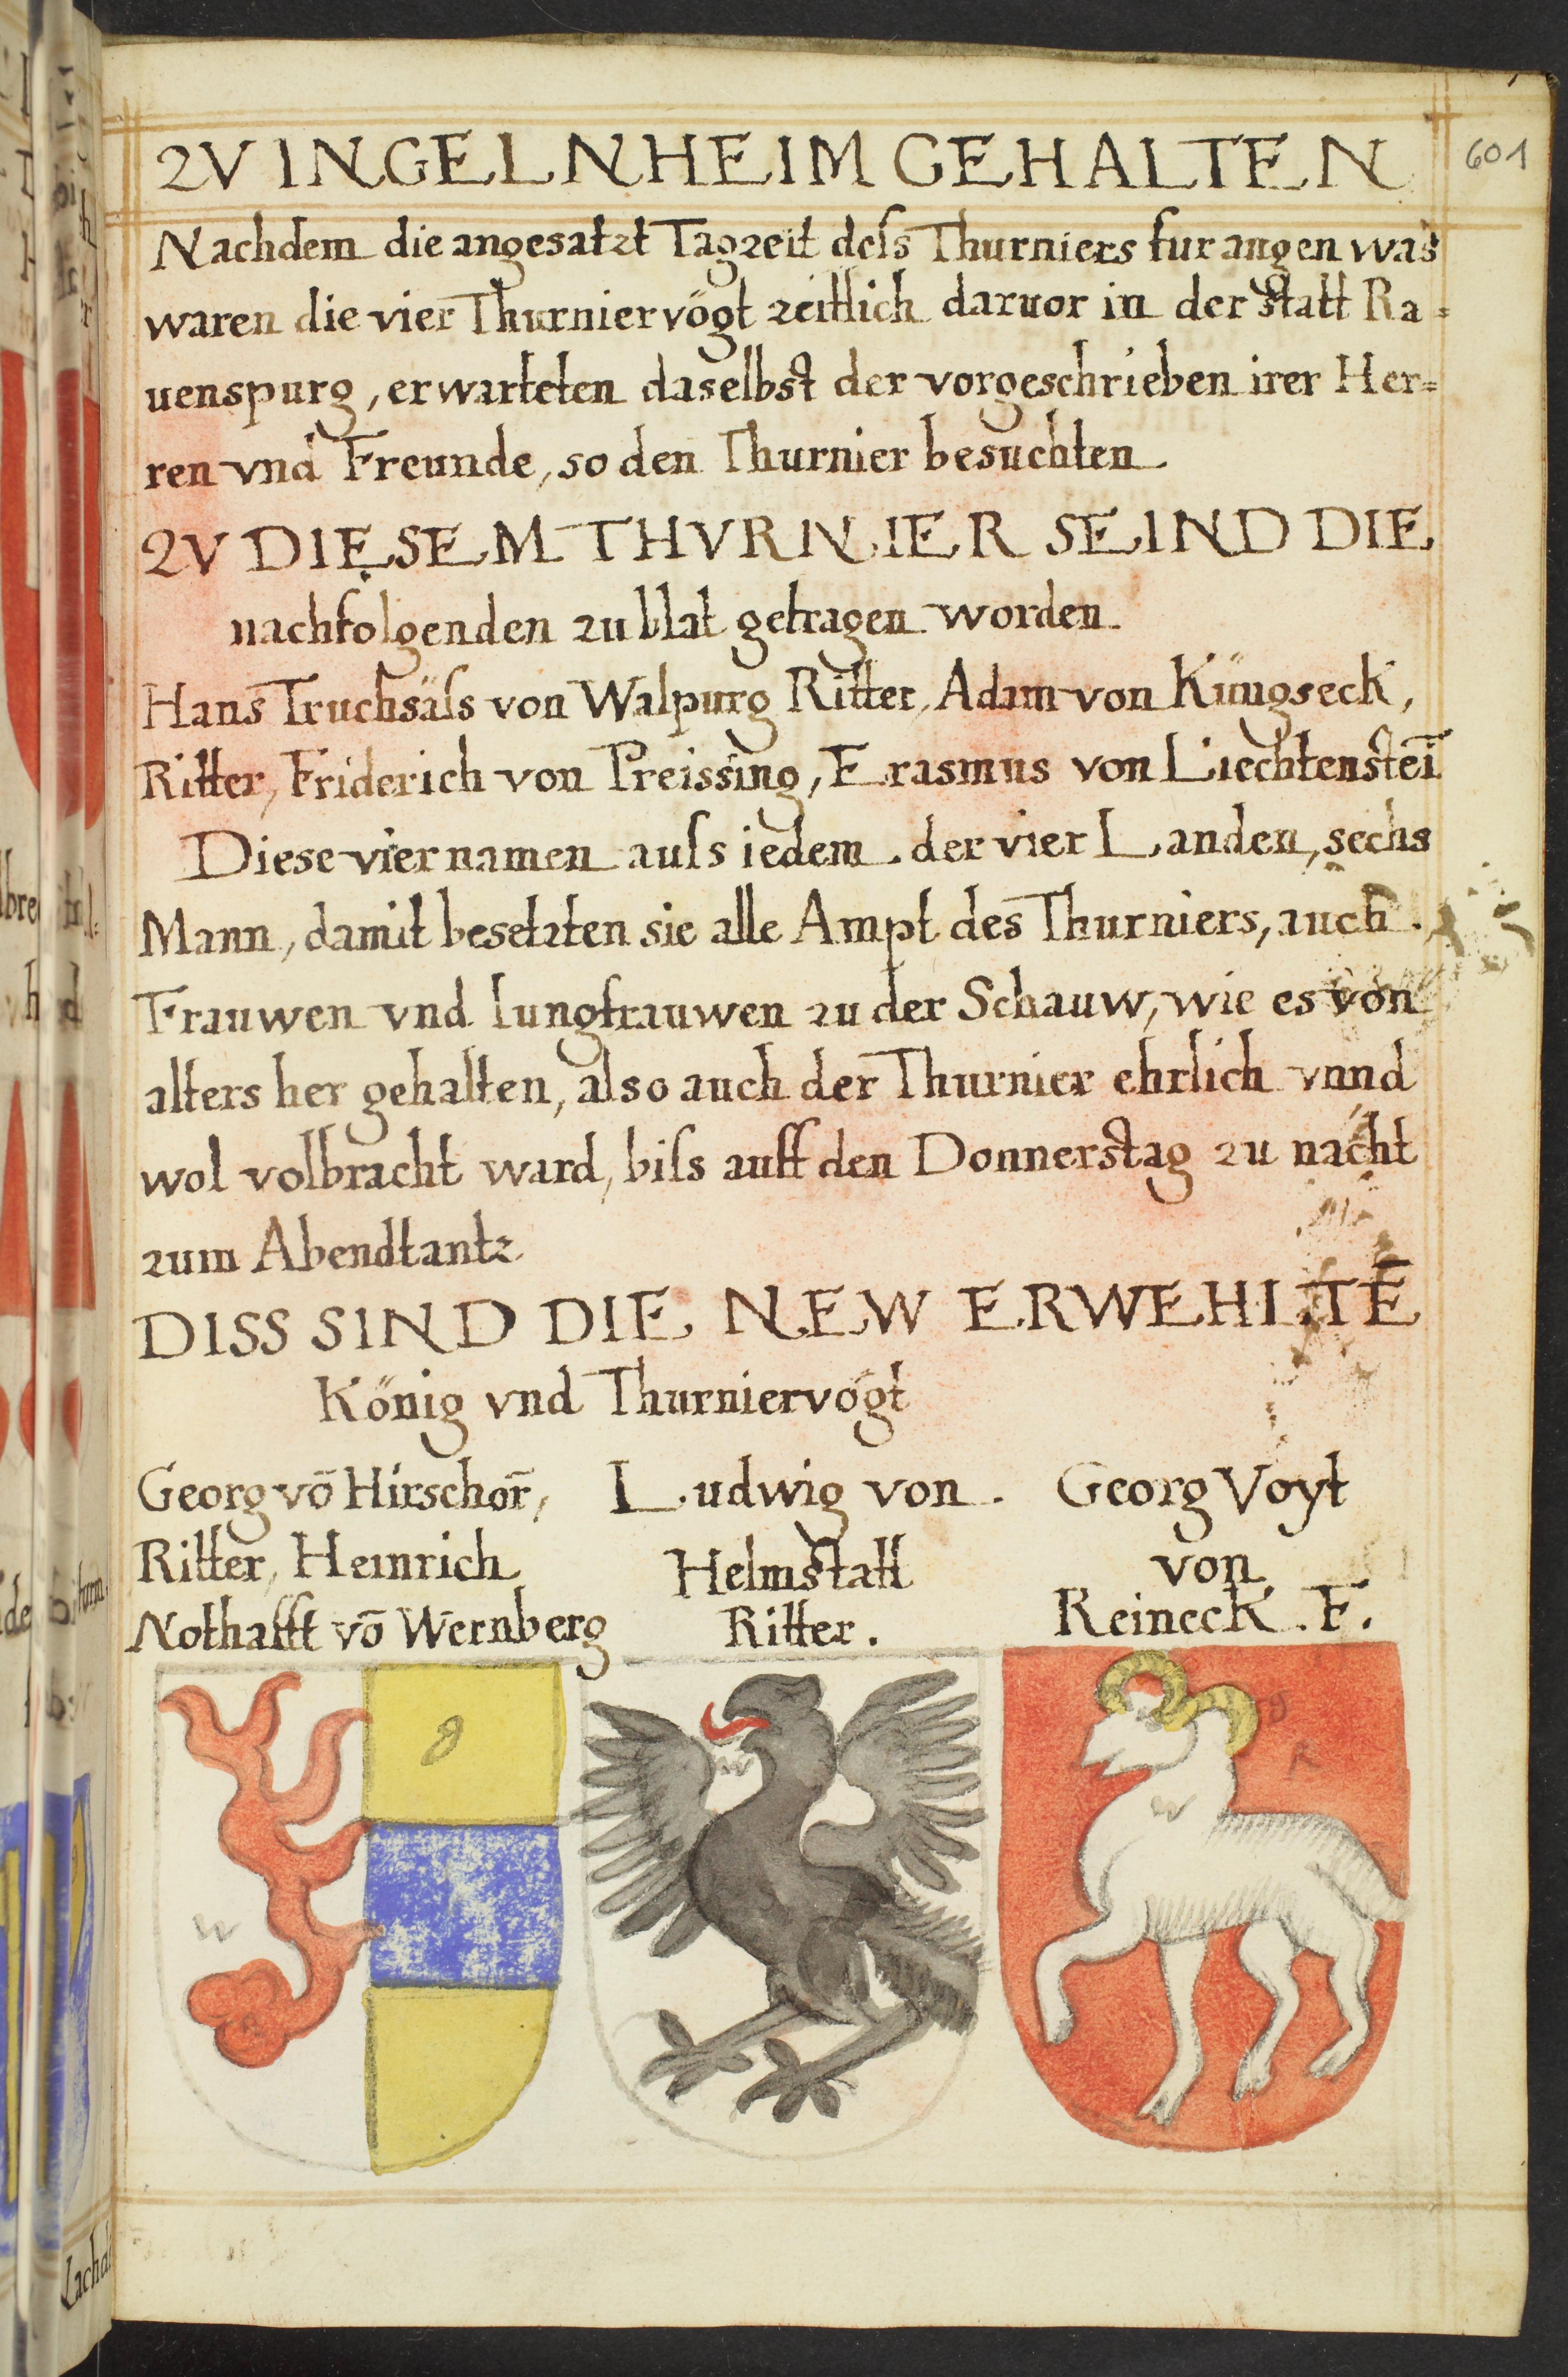 ZV INGELNHEIM GEHALTEN
601
Nachdem die angesatzt Tagzeit deſs Thurniers furangen was
waren die vier Thurniervögt zeitlich daruor in der statt Ra=
uenspurg, erwarteten daselbst der vorgeschrieben irer Her=
ren vnd Freunde, so den Thurnier besuchten.
ZV DIESEM THVRNIER SEIND DIE
nachfolgenden zu blat getragen worden.
Hans Truchsäſs von Walpurg Ritter, Adam von Küngseck,
Ritter, Friderich von Preissing, Erasmus von Liechtensteī
Diese vier namen auſs iedem der vier Landen, sechs
Mann, damit besetzten sie alle Ampt des Thurniers, auch
Frauwen vnd Iungfrauwen zu der Schauw, wie es von
alters her gehalten, also auch der Thurnier ehrlich vnnd
wol volbracht ward, biſs auff den Donnerstag zu nacht
zum Abendtantz
DISS SIND DIE NEW ERWEHLTĒ
König vnd Thurniervögt
Georg vō Hirschor̄,
Ritter, Heinrich
Nothafft vō Wernberg
Ludwig von
Helmstatt
Ritter.
Georg Voyt
von
Reineck. F.
g
W
R
W
g
R
W